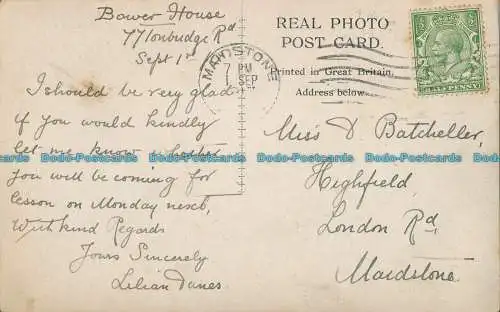 Bower House
77 Tonbridge Rd
Sept 1st
I should be very glad
if you would kindly
let me know whether
you will be coming for
lesson on Monday next,
With kind Regards
Yours Sincerely
Lilian
REAL PHOTO
POST CARD.
Printed in Great Britain.
Address below.
MAIDSTONE
7 PM
SEP
HALFPENNY
Miss D Batcheller,
Highfield,
London Rd,
Maidstone.
Dodo-Postcards Dodo-Postcards Dodo-Postcards Dodo-Postcards Dodo-Postcards